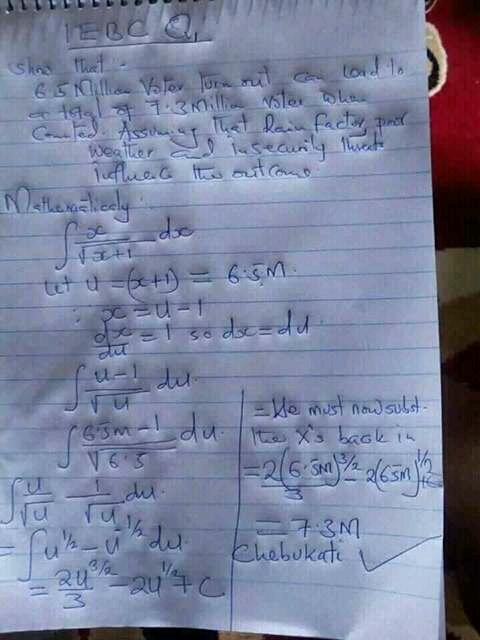 IEBC Q,
Show that :-
6.5 Million Voter Turnout can lead to
a total of 7.3 Million Voter when
Counted. Assuming that Rain Factor, poor
Weather and insecurity threats
influence the outcome
Mathematically:
∫ x/√x+1 dx
Let u = (x+1) = 6.5M.
∴ x = u - 1
dx/du = 1 so dx = du.
∫ u-1/√u du.
∫ 6.5m-1/√6.5 du.
∫ u/√u 1/√u du.
= ∫ u^1/2 - u^1/2 du.
= 2u^3/2/3 - 2u^1/2 + C
= We must now subst.
the X's back in
= 2(6.5M)^3/2/3 - 2(65M)^1/2
= 7.3M
Chebukati ✓